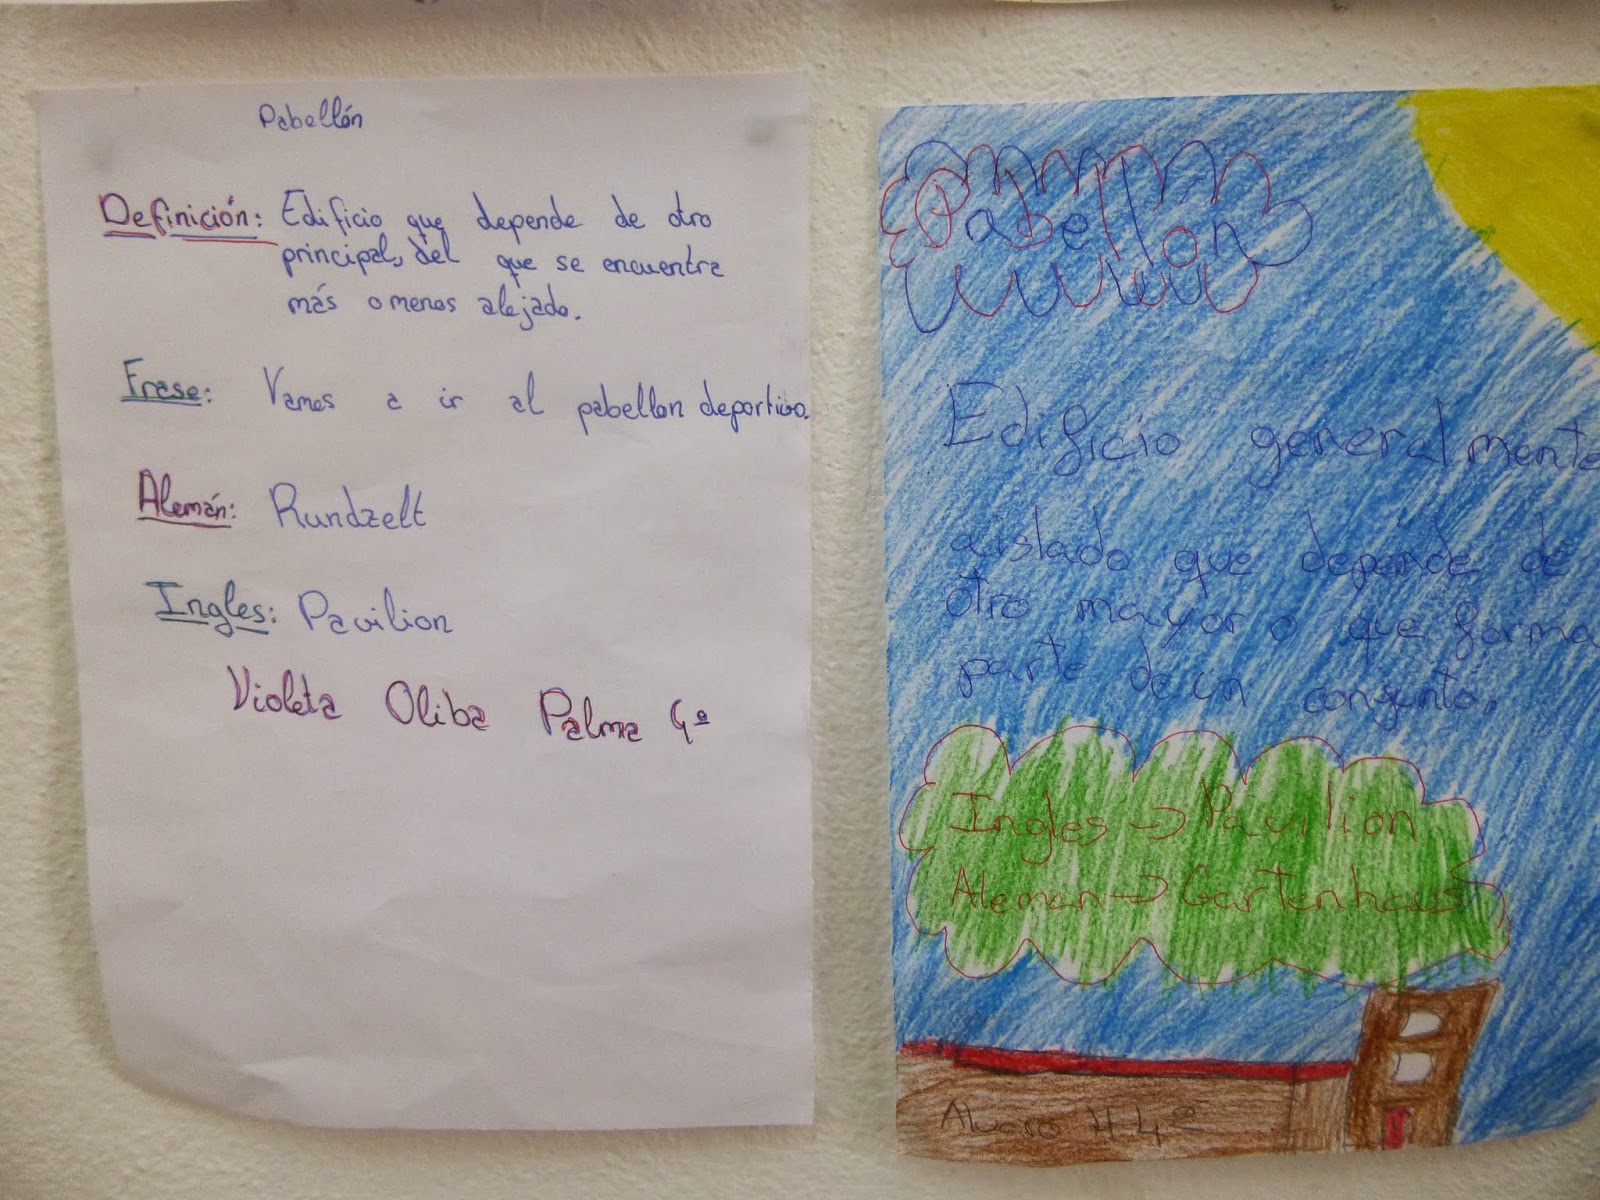 Pabellón
Definición: Edificio que depende de otro
principal, del que se encuentra
más o menos alejado.
Frase: Vamos a ir al pabellon deportivo.
Alemán: Rundzelt
Ingles: Pavilion
Violeta Oliba Palma 4º
Pabellon
Edificio generalmente
aislado que depende de
otro mayor o que forma
parte de un conjunto.
Ingles → Pavilion
Aleman → Gartenhaus
Alvaro H 4º